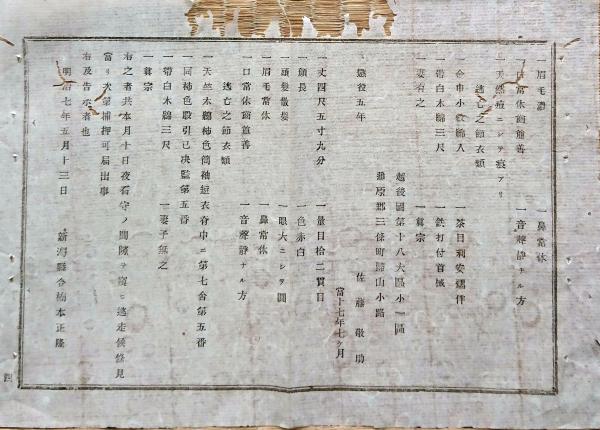 一眉毛濃 一鼻常体
一口常体齒並善 一音聲静ナル方
一天然痘ニシテ痕アリ
逃亡之節衣類
一金巾小歛綿入 一茶目利安襦袢
一帶白木綿三尺 一鉄打付首械
一妻有之 一眞宗
越後國第十八大區小一區
蒲原郡三條町歸山小路
懲役五年 佐藤敬助
當十七年七ケ月
一丈四尺五寸九分 一量目拾二貫目
一顔長 一色赤白
一頭髮散髮 一眼大ニシテ圓
一眉毛常体 一鼻常体
一口常体齒並善 一音聲静ナル方
逃亡之節衣類
一天竺木綿柿色筒袖短衣脊中ニ第七舎第五番
一同柿色股引已決監第五番
一帶白木綿三尺 一妻子無之
一眞宗
右之者共本月十日夜看守ノ間隙ヲ窺ヒ逃走候條見
當リ次第捕押可届出事
右及告示者也
明治七年五月十三日 新潟縣令楠本正隆